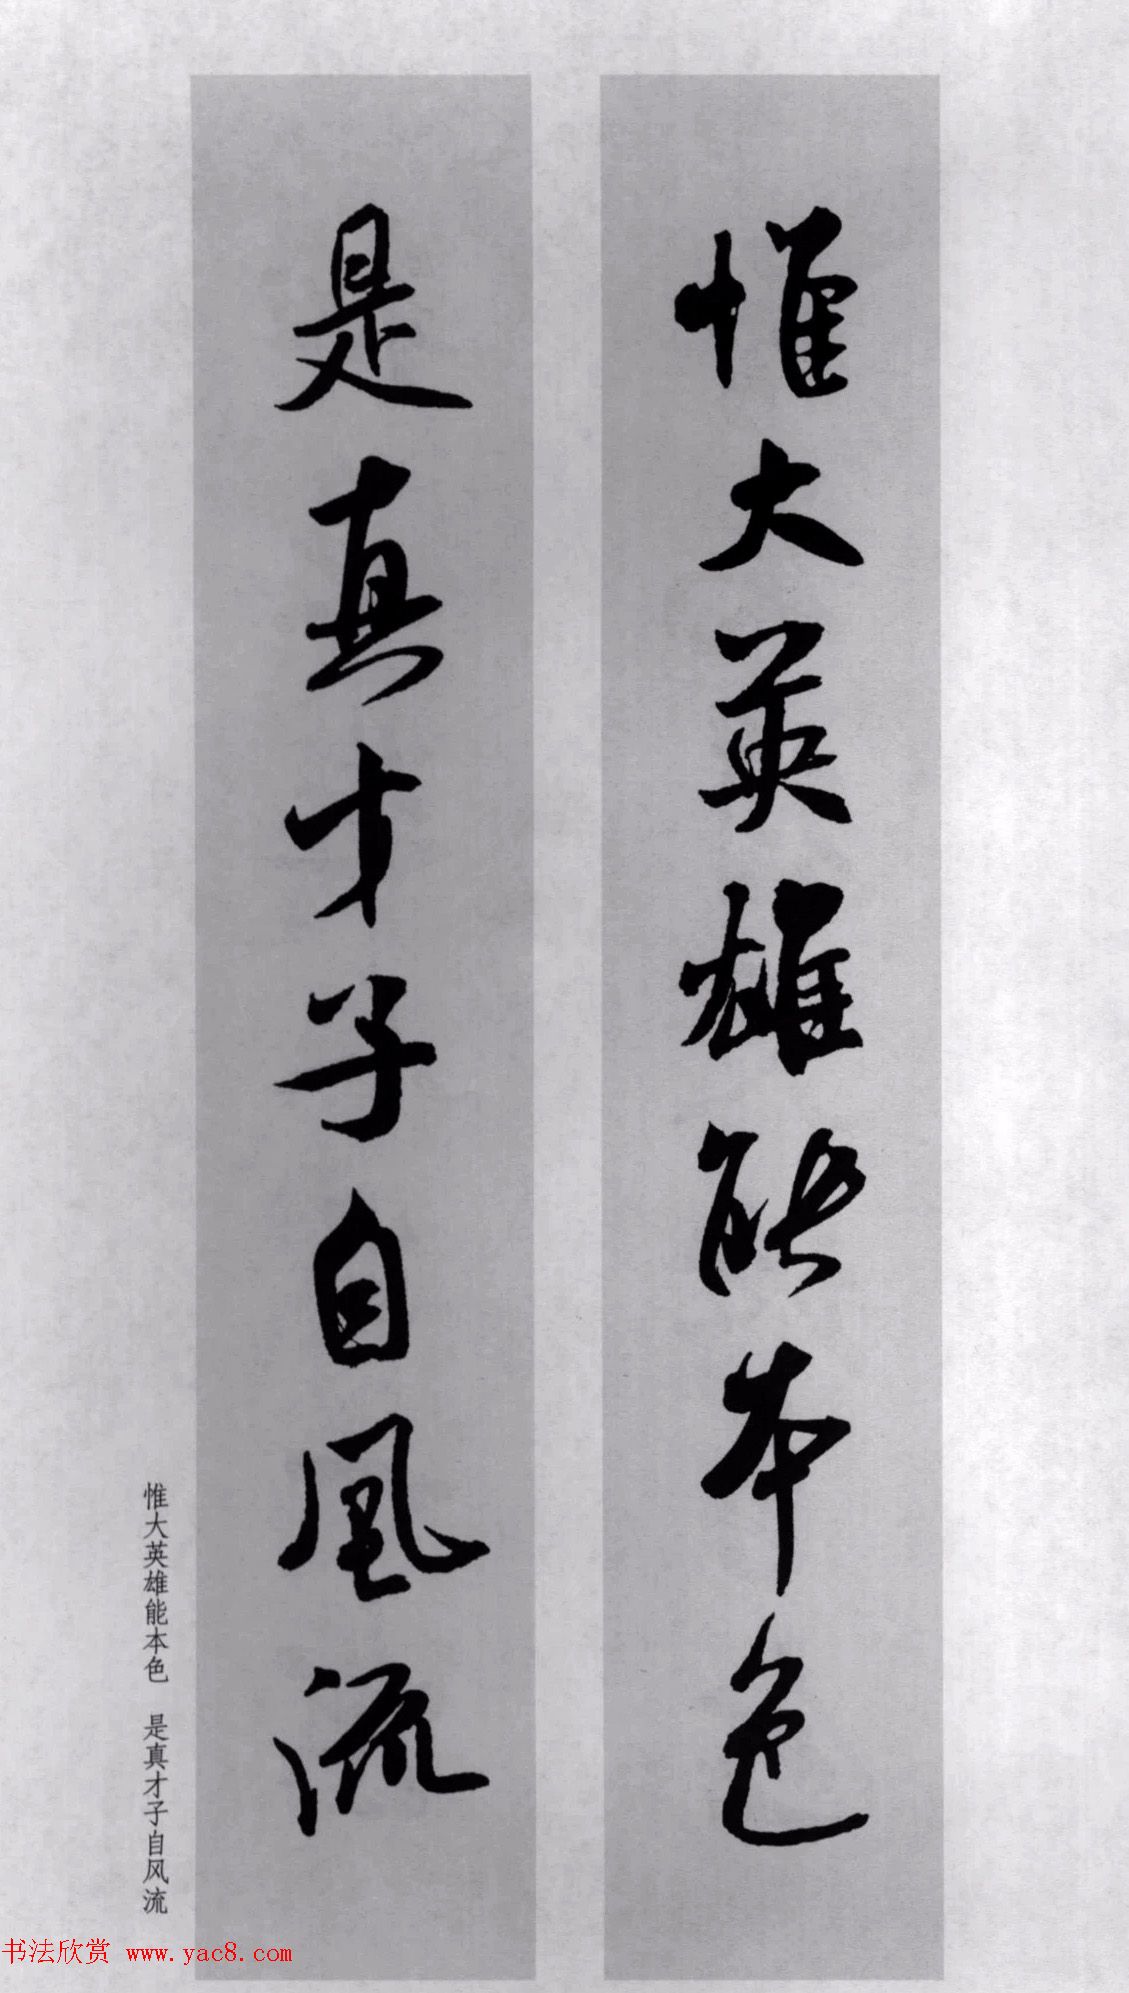 惟大英雄能本色
是真才子自風流
惟大英雄能本色　是真才子自风流
书法欣赏 www.yac8.com